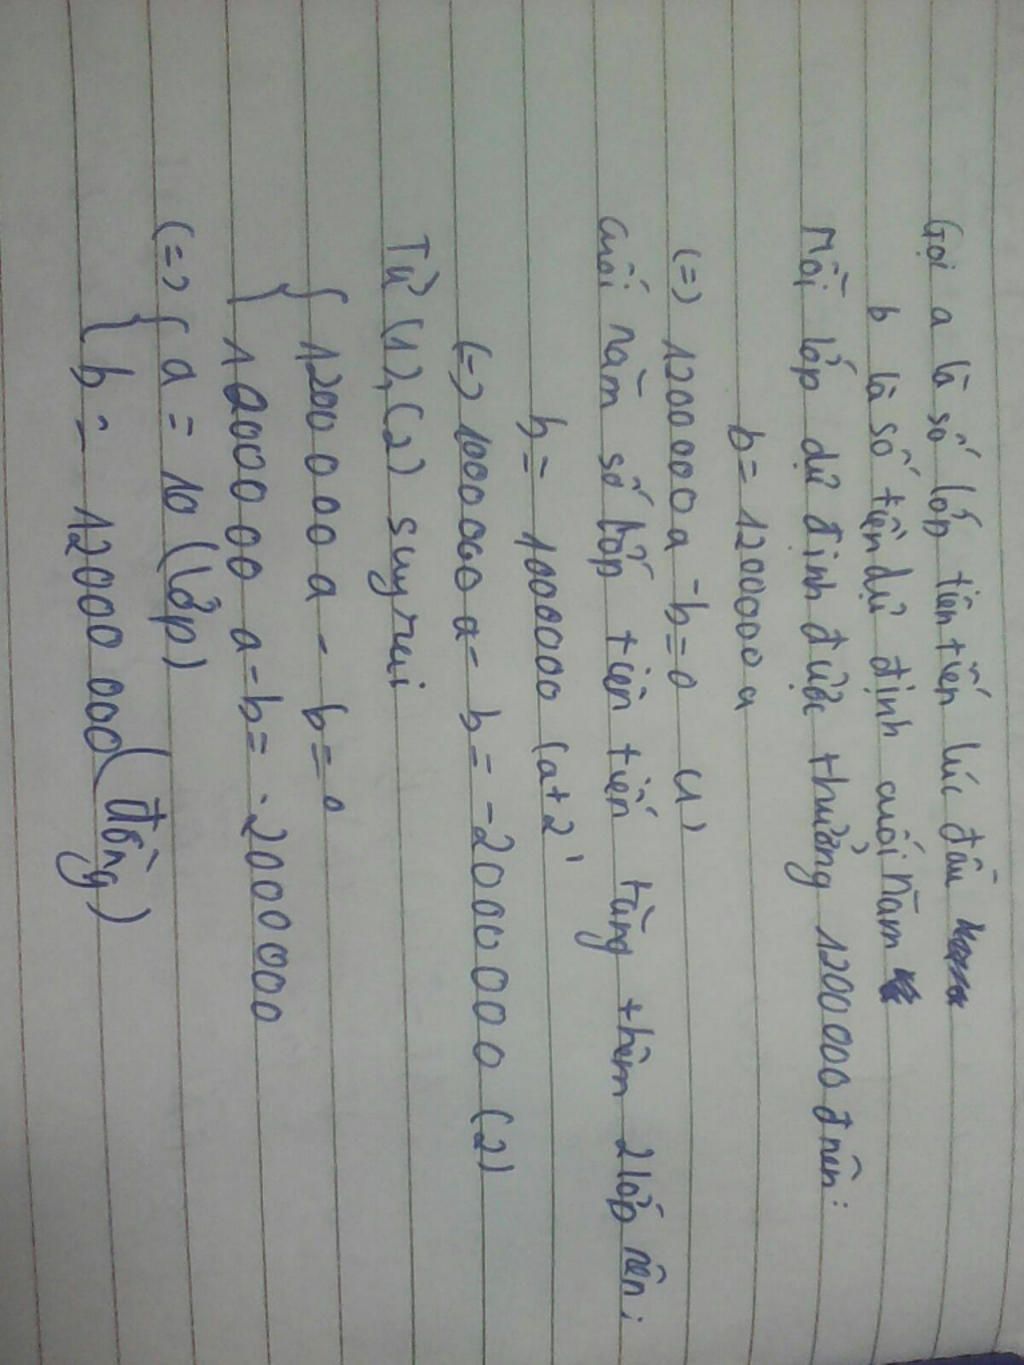 Gọi a là số lớp tiên tiến lúc đầu
b là số tiền dự định cuối năm
Mỗi lớp dự định được thưởng 1200 000 đ nên:
b = 1200000 a
(=) 1200000 a - b = 0 (1)
cuối năm số lớp tiên tiến tăng thêm 2 lớp nên:
b = 1000000 (a+2)
(=) 1000000 a - b = -2000000 (2)
Từ (1), (2) suy ra
{ 1200 000 a - b = 0
1000000 a - b = -2000000
(=) { a = 10 (lớp)
b = 12000 000 (đồng)